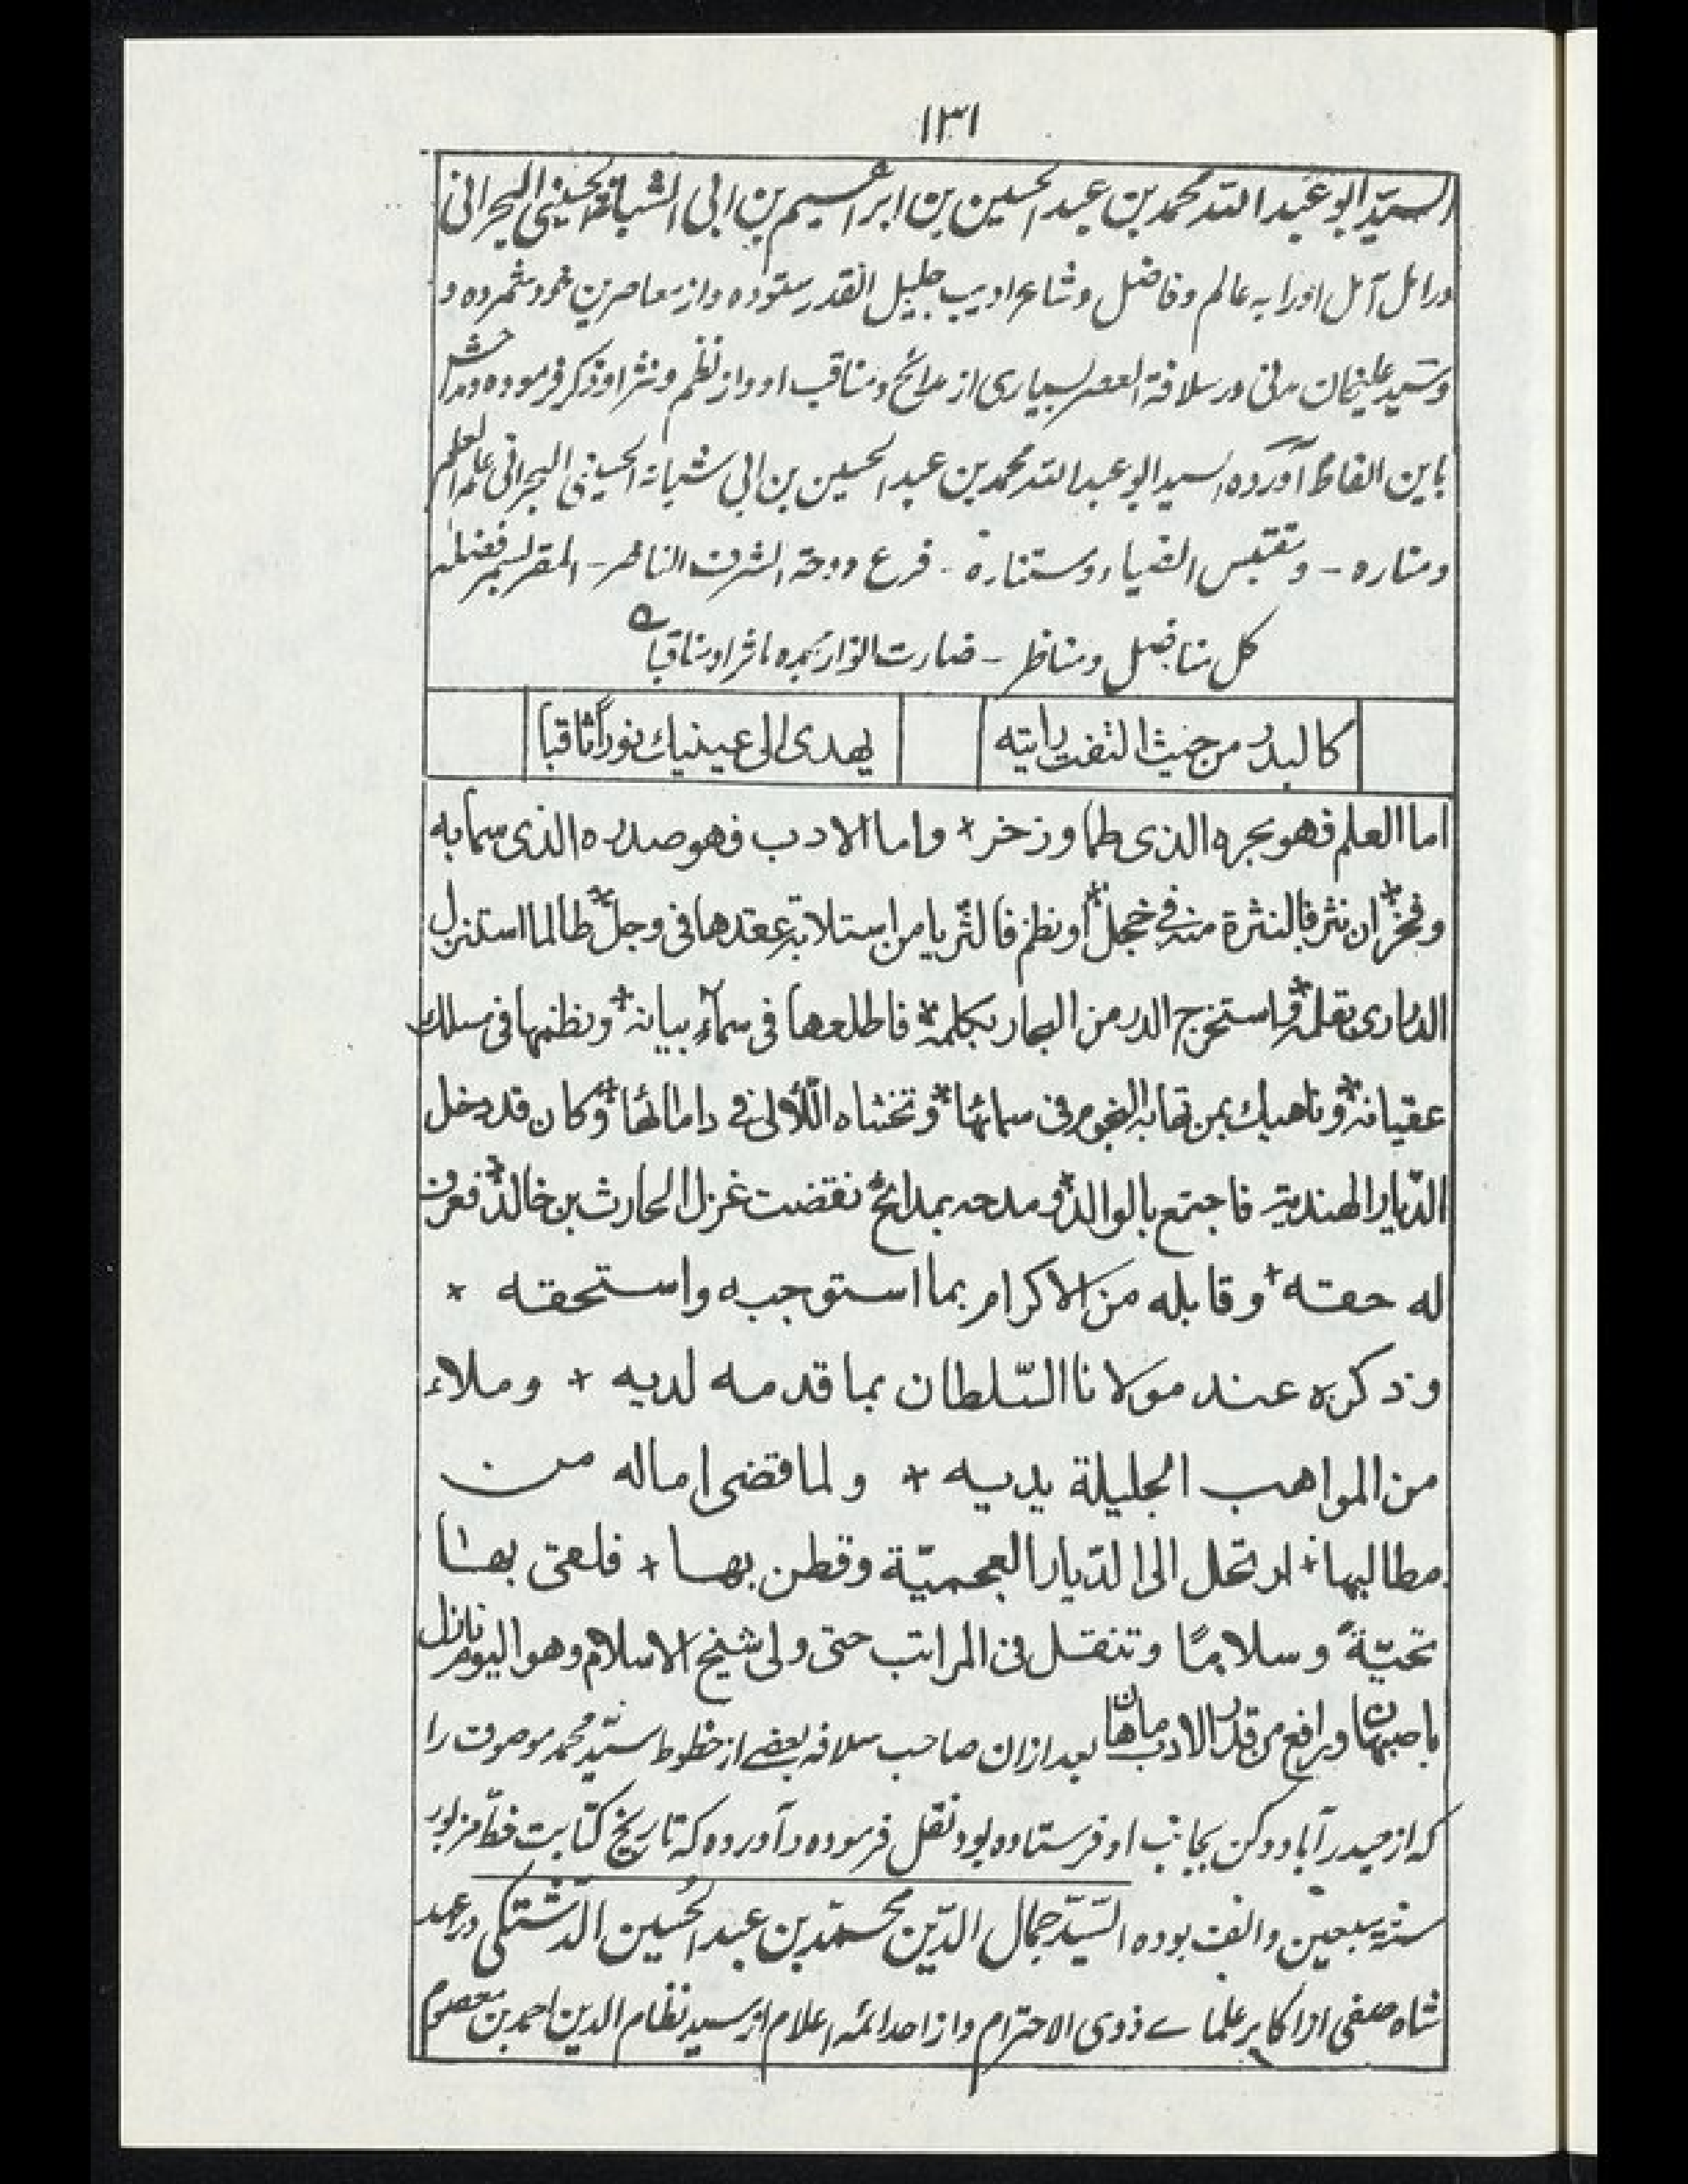 ١٣١
السيّد ابو عبد الله محمد بن عبد الحسين بن ابراهيم بن ابى الشبانة الحسينى البحرانى
در امل آمل اورا به عالم وفاضل وشاعر اديب جليل القدر ستوده واز معاصرين خود شمرده و
وسيد عليخان مدنى در سلافة العصر بسيارى از مدائح ومناقب او واز نظم ونثر او ذكر فرموده
باين الفاظ آورده السيد ابو عبد الله محمد بن عبد الحسين بن ابى شبانة الحسينى البحرانى علم العلم
ومناره - ومقتبس الفضل ومستناره - فرع دوحة الشرف الناضر - المقر بسمو فضله
كل مناضل ومناظر - اضاءت انوار مجده مآثرا ومناقبا
كالبدر من حيث التفت رايته يهدى الى عينيك نوراً ثاقبا
اما العلم فهو بحره الذى طما وزخر * واما الادب فهو صدره الذى سما به
وفخر * ان نثر فالنثرة منه فى خجل * او نظم فالثريا من استلابه عقدها فى وجل * طالما استنزل
الدرارى بقلمه * واستخرج الدرر من البحار بكلمه * فاطلعها فى سماء بيانه * ونظمها فى سلك
عقيانه * وناهيك بمن تهابه النجوم فى سمائها * وتخشاه اللآلى فى دامائها * وكان قد دخل
الديار الهندية فاجتمع بالوالد * ومدحه بمدائح نقضت غزل الحارث بن خالد * فعرف
له حقه * وقابله من الاكرام بما استوجبه واستحقه *
وذكره عند مولانا السّلطان بما قدمه لديه * وملاء
من المواهب الجليلة يديه * ولما قضى اماله من
مطالبها * ارتحل الى الدّيار العجميّة وقطن بها * فلقى بها
تحيّةً وسلامًا وتنقل فى المراتب حتى ولى شيخ الاسلام وهو اليوم نازل
باصبهان ورافع من قدر الادب ماهان بعد ازان صاحب سلافه بعضے از خطوط سيّد محمد موصوف را
كه از حيدرآباد دكن بجانب او فرستاده بود نقل فرموده وآورده كه تاريخ كتابت خطّ مزبور
سنة سبعين والف بوده السّيّد جمال الدّين محمّد بن عبد الحسين الدّشتكى در عهد
شاه صفى از اكابر علماے ذوى الاحترام واز احد ائمه اعلام اوز سيد نظام الدين احمد بن معصوم